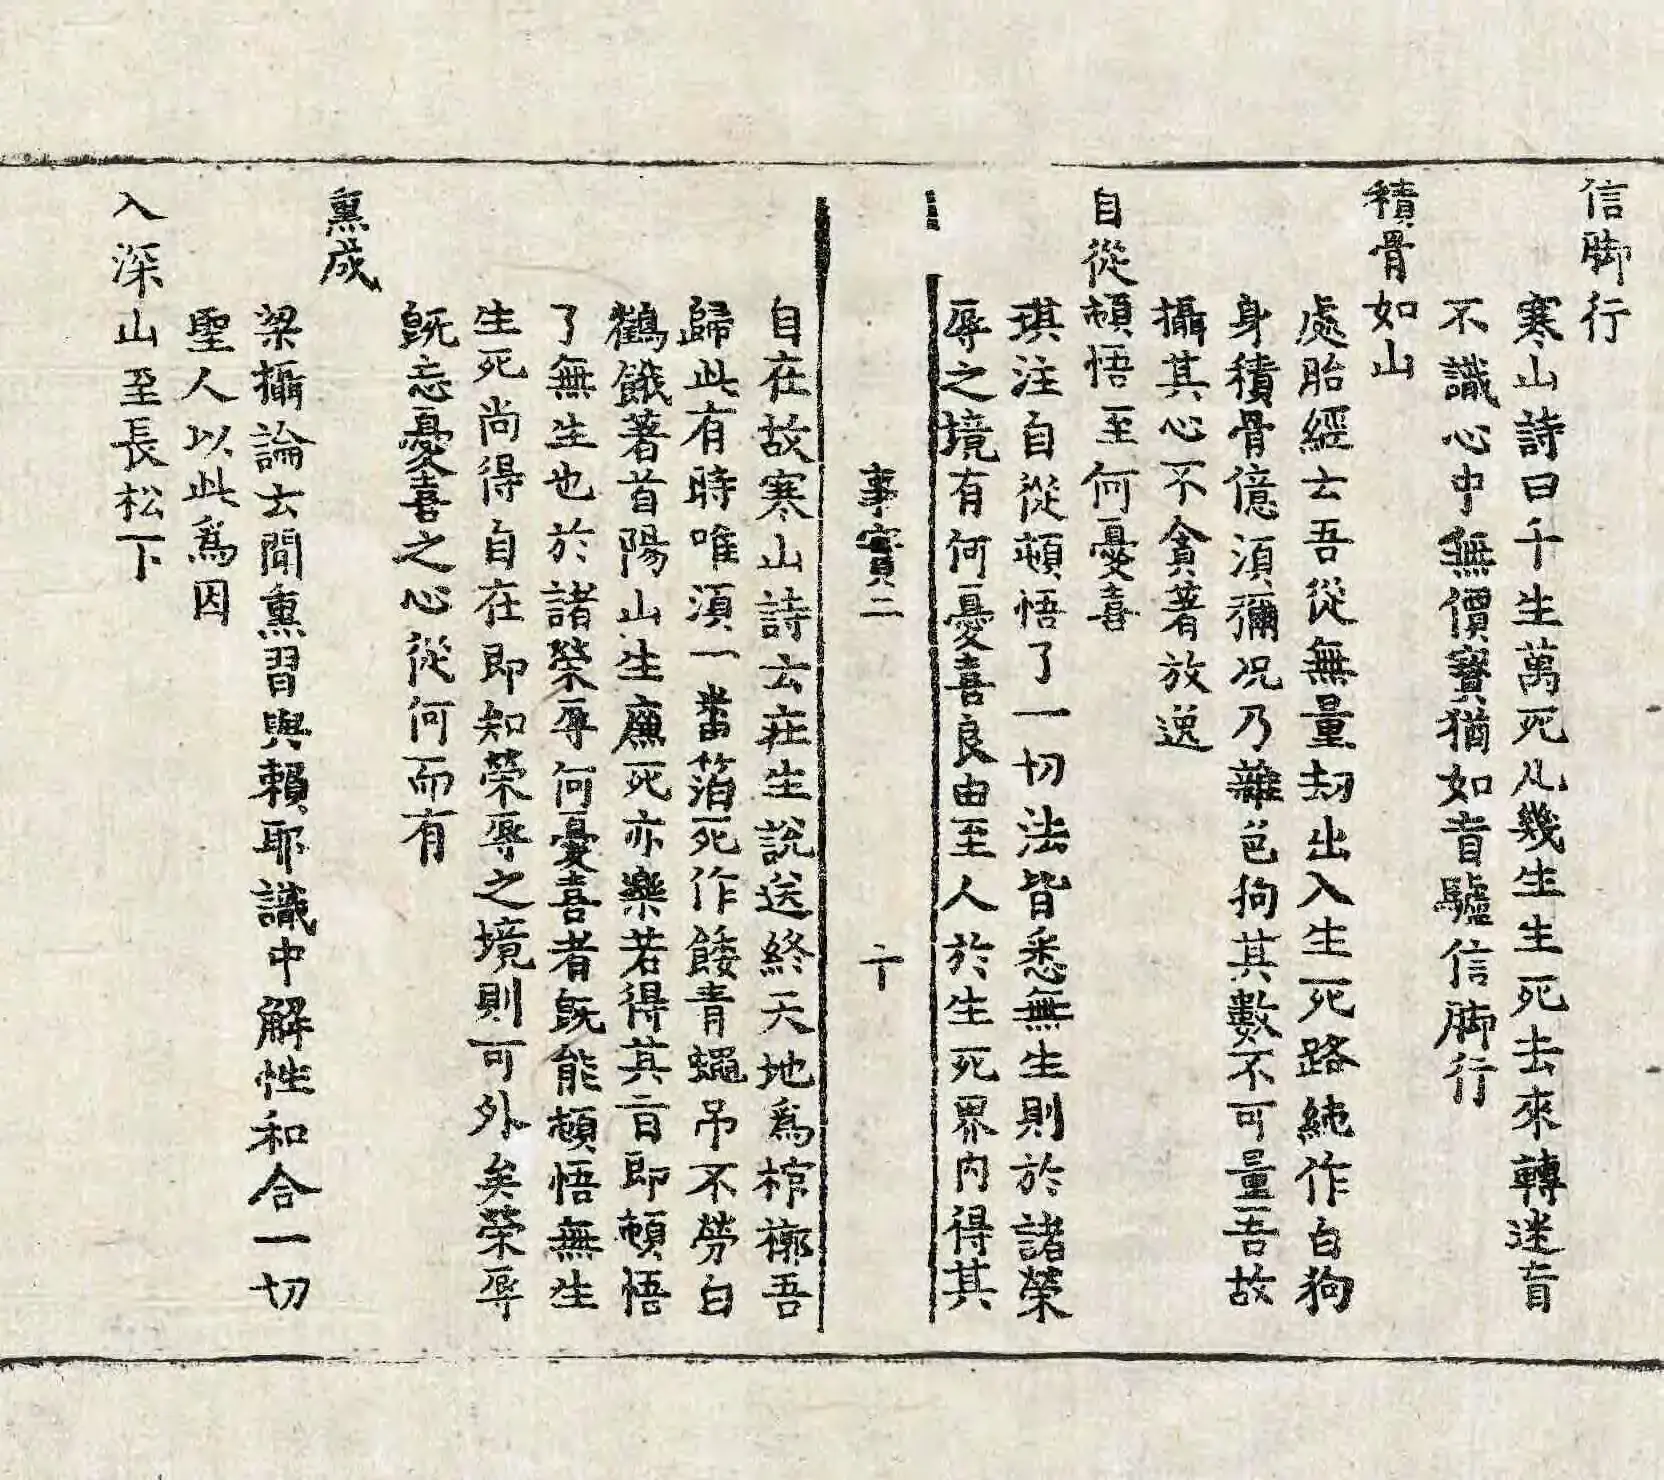 信脚行
寒山詩曰千生萬死凡幾生生死去來轉迷盲
不識心中無價寳猶如盲驢信脚行
積骨如山
處胎經云吾從無量劫出入生死路純作白狗
身積骨億湏彌况乃雜色狗其數不可量吾故
攝其心不貪著放逸
自從頓悟至何憂喜
琪注自從頓悟了一切法皆悉無生則於諸榮
辱之境有何憂喜良由至人於生死界内得其
事實二
十
自在故寒山詩云在生說送終天地爲棺槨吾
歸此有時唯湏一番箔死作餧青蝇吊不勞白
鶴餓著首陽山生廉死亦樂若得其盲即頓悟
了無生也於諸榮辱何憂喜者旣能頓悟無生
生死尚得自在即知榮辱之境則可外矣榮辱
旣忘憂喜之心從何而有
熏成
梁攝論云聞熏習與賴耶識中解性和合一切
聖人以此爲因
入深山至長松下